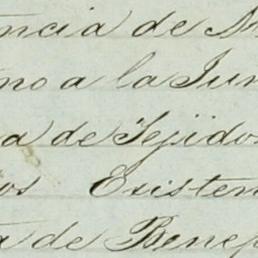 ncia de
no a la Jun
a de Tejidos
os Existen
a de Benef